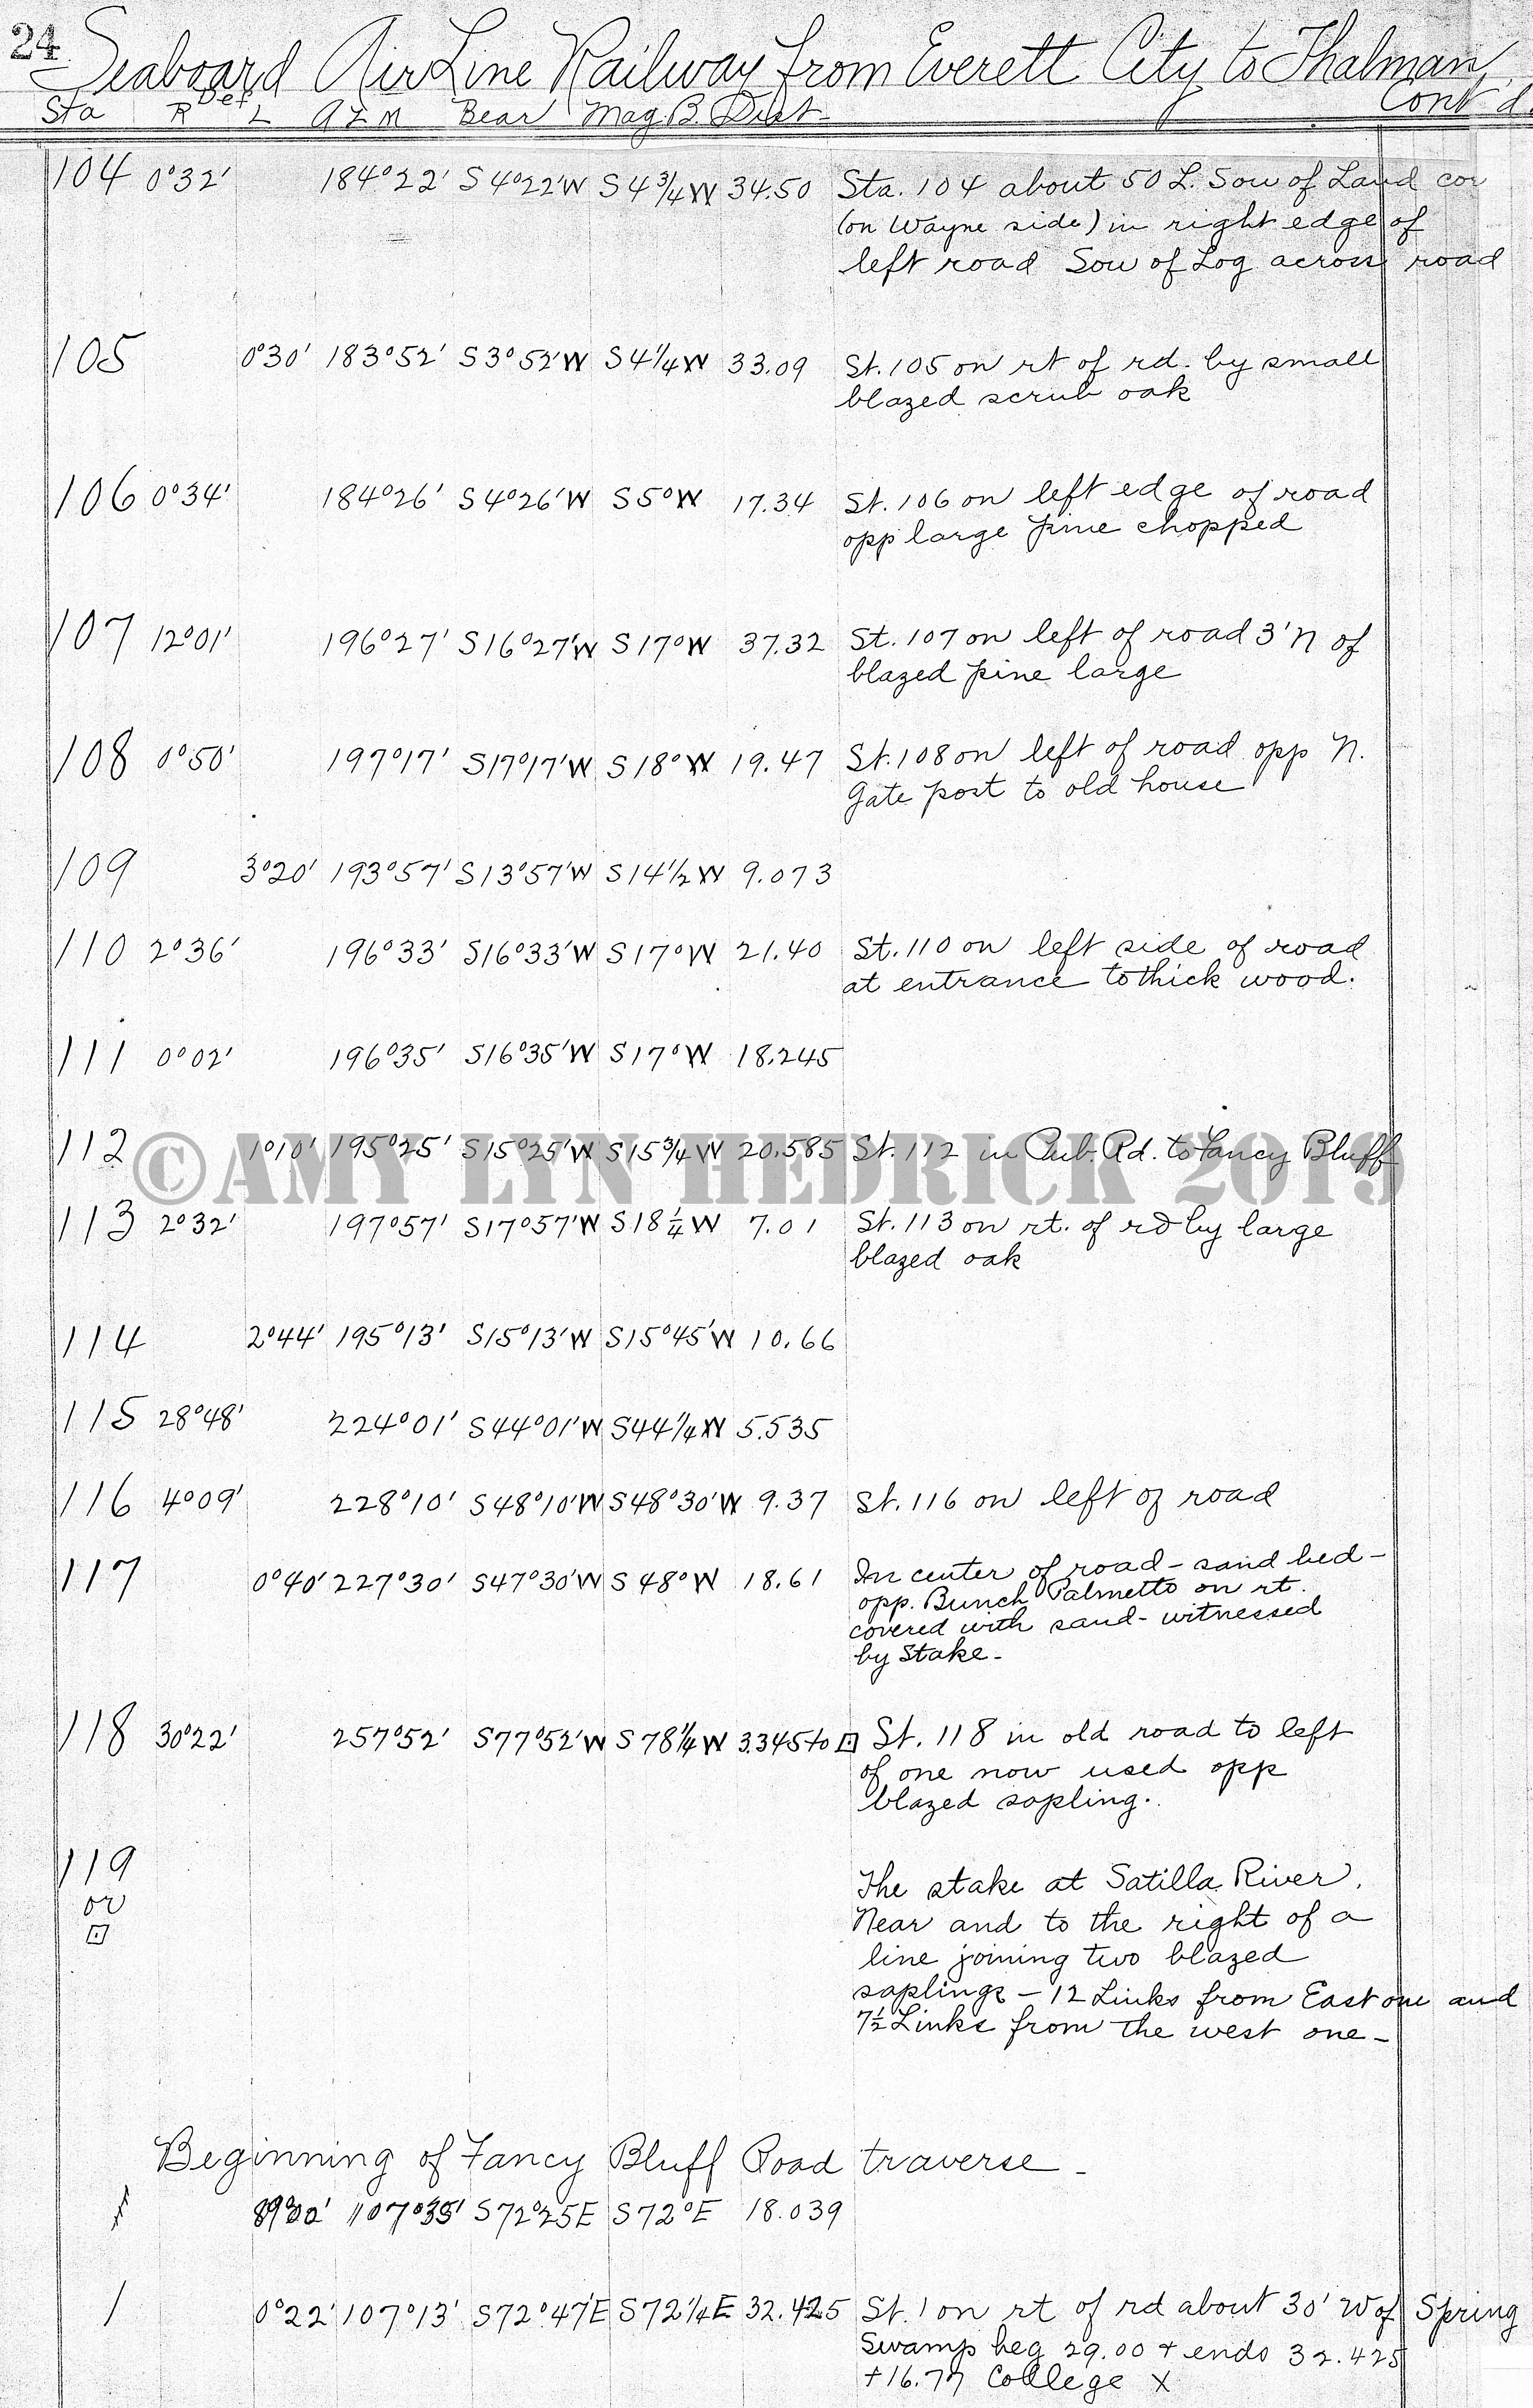 24
Seaboard Air Line Railway from Everett City to Thalman
Cont'd.
Sta R Def L AZM Bear Mag. B. Dist.
104 0°32' 184°22' S4°22'W S4 3/4 W 34.50 Sta. 104 about 50 L. Sow of Land cor
(on Wayne side) in right edge of
left road Sow of Log across road
105 0°30' 183°52' S3°52'W S4 1/4 W 33.09 St. 105 on rt of rd. by small
blazed scrub oak
106 0°34' 184°26' S4°26'W S5°W 17.34 St. 106 on left edge of road
opp large pine chopped
107 12°01' 196°27' S16°27'W S17°W 37.32 St. 107 on left of road 3'N of
blazed pine large
108 0°50' 197°17' S17°17'W S18°W 19.47 St. 108 on left of road opp N.
Gate post to old house
109 3°20' 193°57' S13°57'W S14 1/2 W 9.073
110 2°36' 196°33' S16°33'W S17°W 21.40 St. 110 on left side of road
at entrance to thick wood.
111 0°02' 196°35' S16°35'W S17°W 18.245
112 1°10' 195°25' S15°25'W S15 3/4 W 20.585 St. 112 in Pub. Rd. to Fancy Bluff
©AMY LYN HEDRICK 2019
113 2°32' 197°57' S17°57'W S18 1/4 W 7.01 St. 113 on rt. of rd by large
blazed oak
114 2°44' 195°13' S15°13'W S15°45'W 10.66
115 28°48' 224°01' S44°01'W S44 1/4 W 5.535
116 4°09' 228°10' S48°10'W S48°30'W 9.37 St. 116 on left of road
117 0°40' 227°30' S47°30'W S48°W 18.61 In center of road - sand bed -
opp. Bunch Palmetto on rt.
covered with sand - witnessed
by stake -
118 30°22' 257°52' S77°52'W S78 1/4 W 3.345 to ⊡ St. 118 in old road to left
of one now used opp
blazed sapling.
119 The stake at Satilla River.
or Near and to the right of a
⊡ line joining two blazed
saplings - 12 Links from East one and
7½ Links from the west one -
Beginning of Fancy Bluff Road traverse -
S72°25E S72°E 18.039
1 0°22' 107°13' S72°47'E S72 1/4 E 32.425 St. 1 on rt of rd about 30' W of Spring
Swamp beg 29.00 + ends 32.425
+16.77 College X